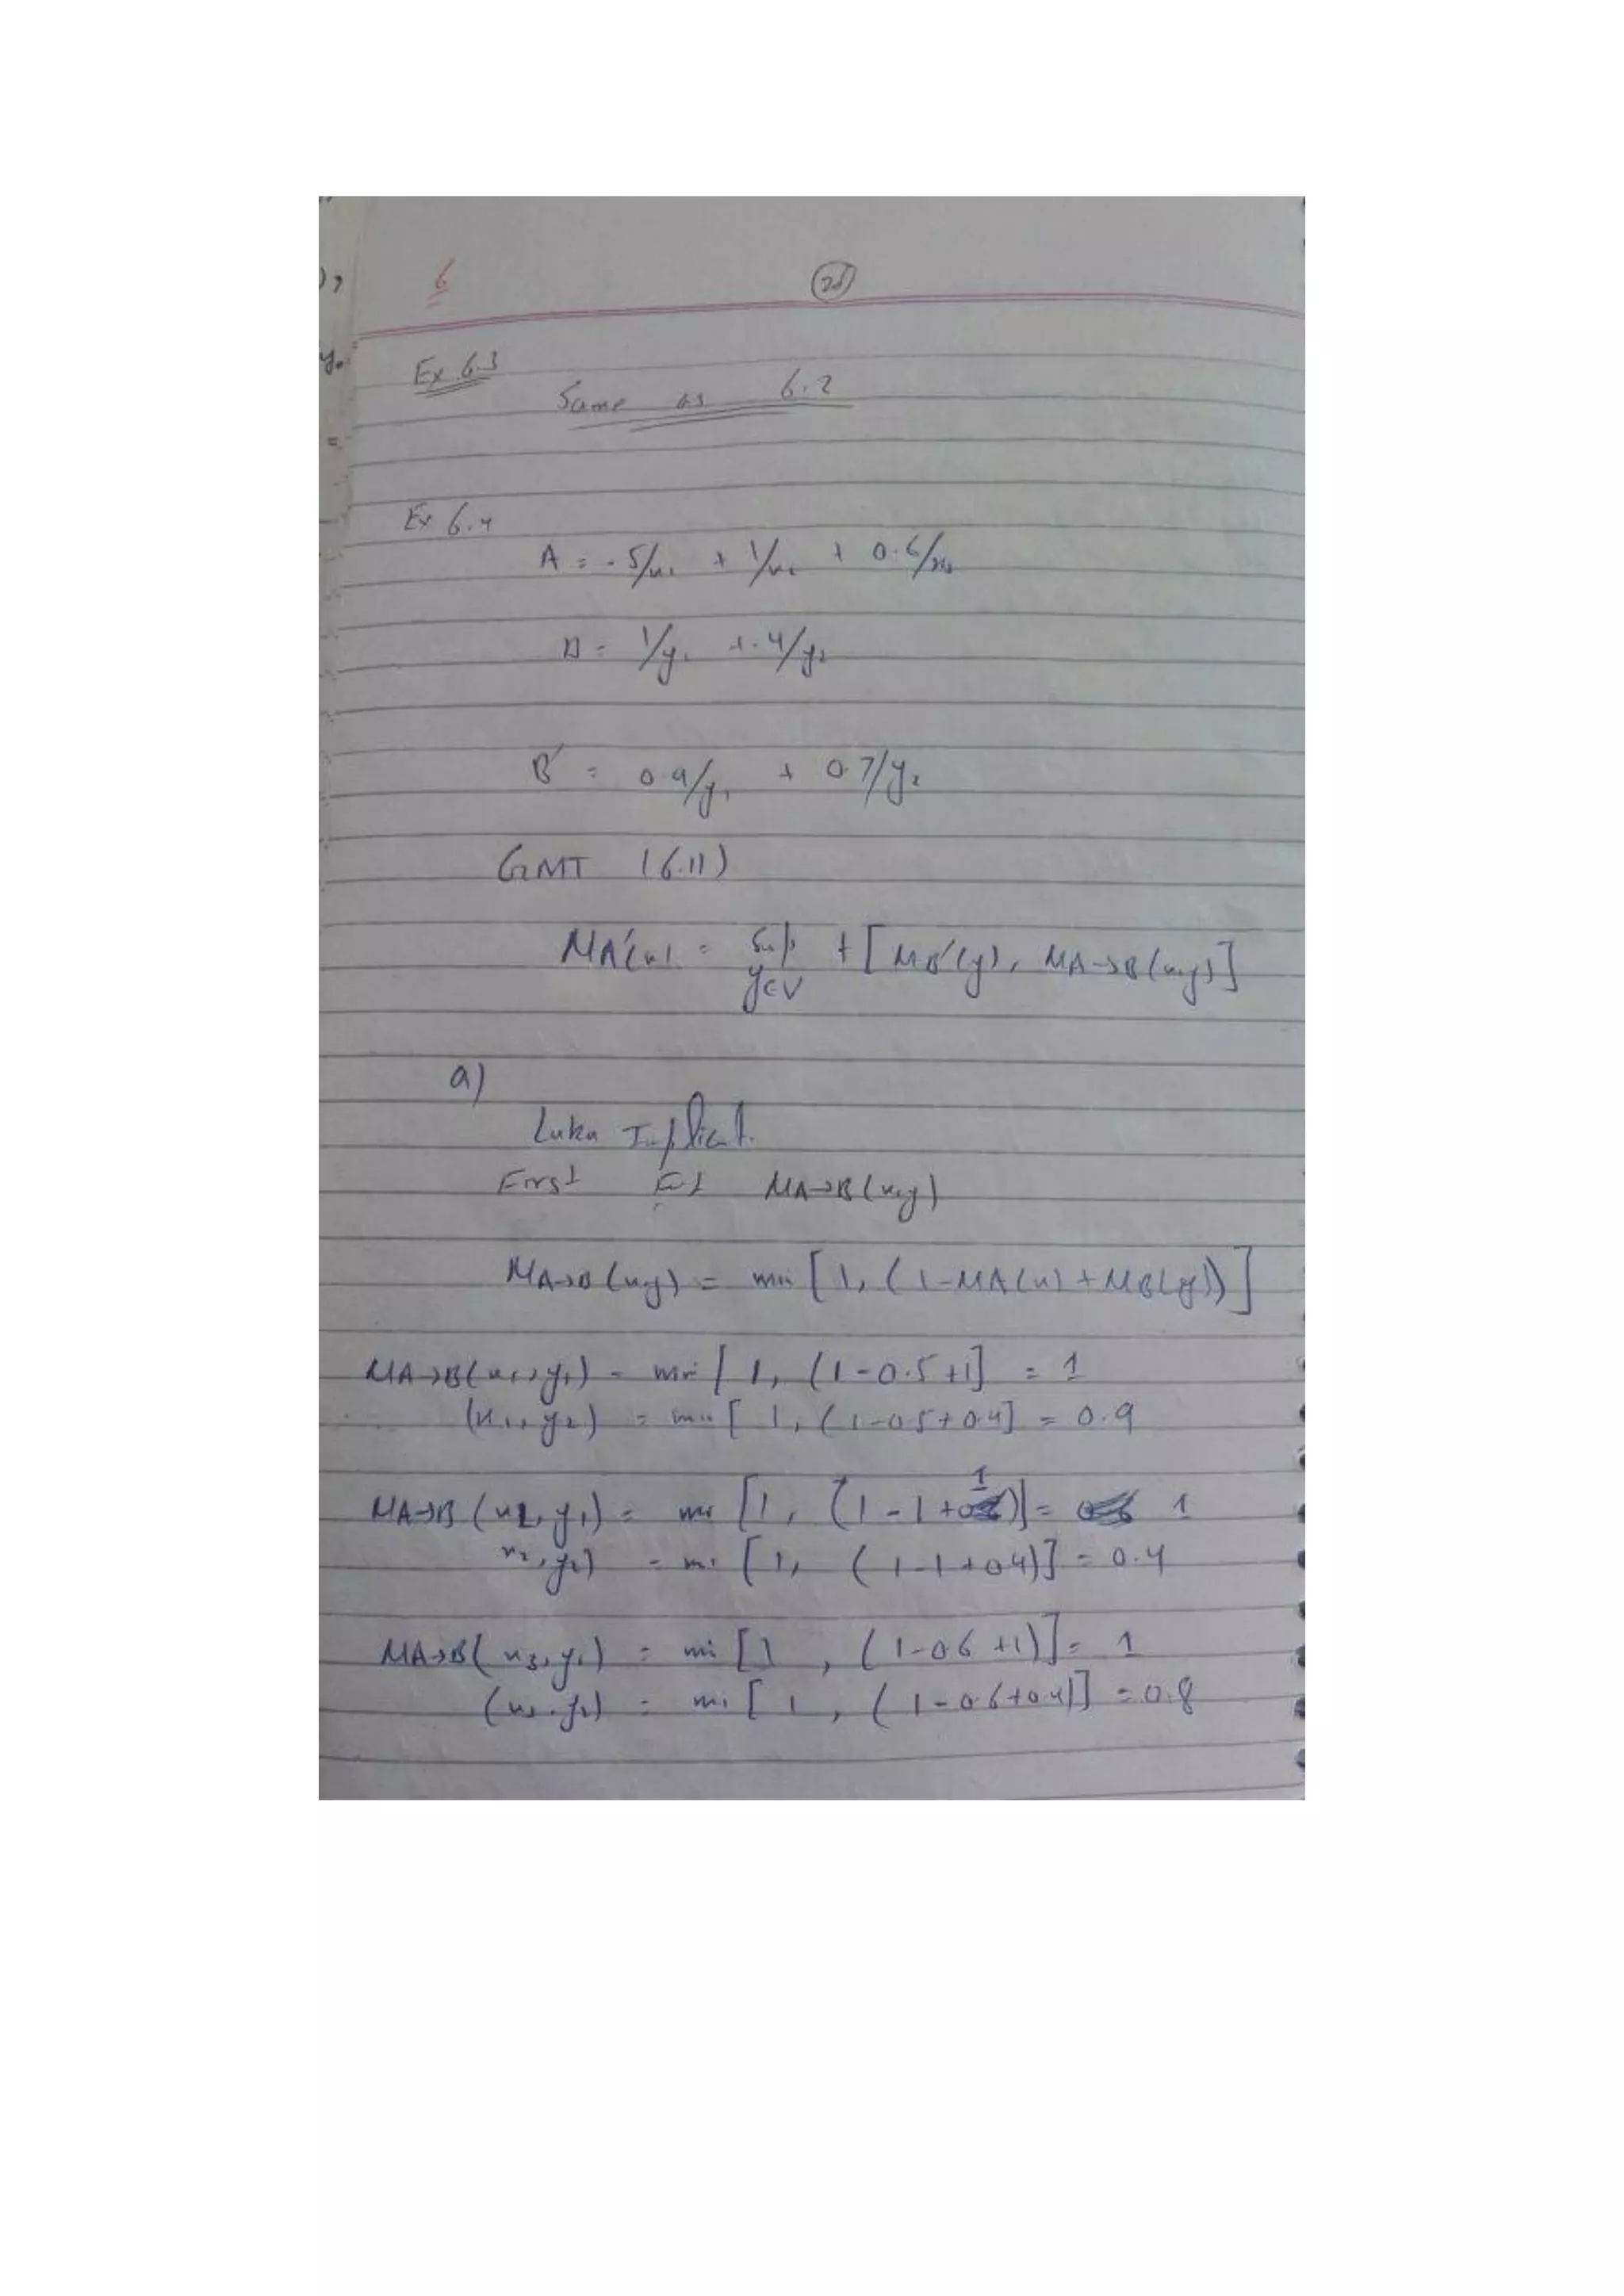 6
Ex 6.3
Same as 6.2
Ex 6.4
A = .5/x₁ + 1/x₂ + 0.6/x₃
B = 1/y₁ + .4/y₂
B' = 0.9/y₁ + 0.7/y₂
GMT (6.11)
MA'(x) = Sup t [MB'(y), MA→B(x,y)]
y∈V
a)
Luka Implicat.
First MA→B(x,y)
MA→B(x,y) = min [1, (1-MA(x) + MB(y))]
MA→B(x₁,y₁) = min [1, (1-0.5+1] = 1
(x₁,y₂) = min [1, (1-0.5+0.4] = 0.9
MA→B (x₂,y₁) = min [1, (1-1+1)] = 1
x₂,y₂) = mi [1, (1-1+0.4)] = 0.4
MA→B(x₃,y₁) = mi [1, (1-0.6+1)] = 1
(x₃,y₂) = mi [1, (1-0.6+0.4)] = 0.8